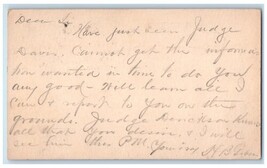 Dear Sir
I Have just seen Judge
Davis. Cannot get the informa
tion wanted in time to do you
any good - Will learn all I
can & report to you on the
grounds. Judge Dereckson knows
all that you desire & I will
see him this P.M. Yours
H B